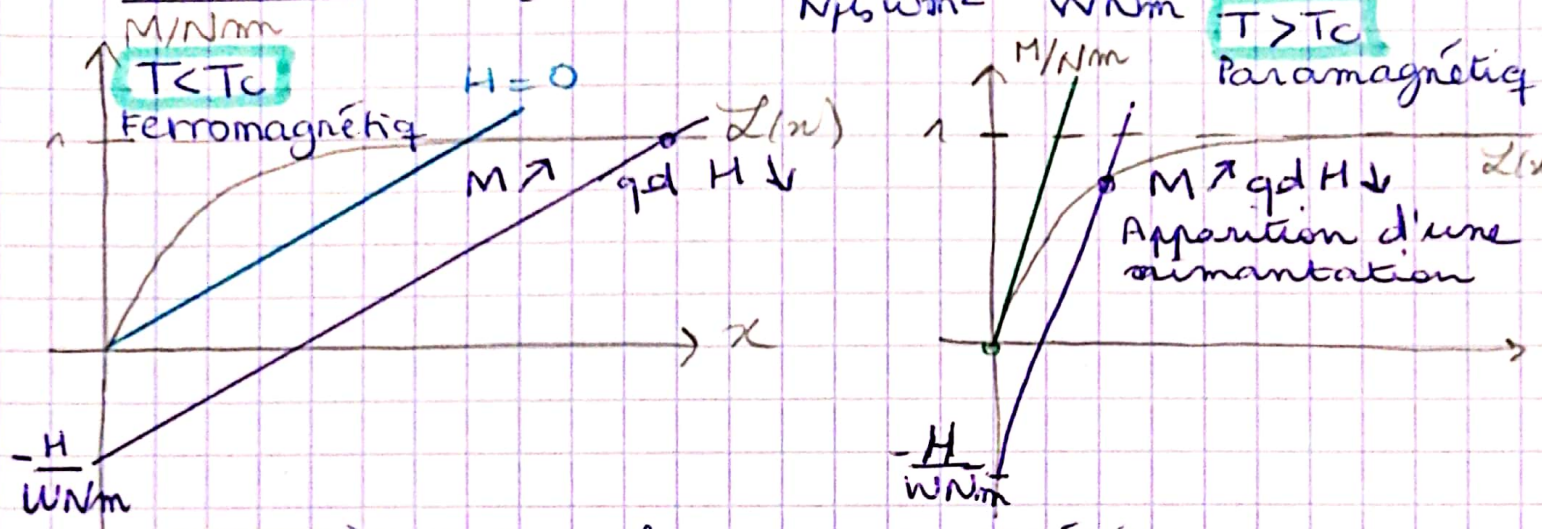 M/Nm
T<Tc
Ferromagnétiq
H = 0
1
L(x)
M ↗ qd H ↓
x
-H/WNm
WNm
T>Tc
Paramagnétiq
M/Nm
1
M ↗ qd H ↓
Apparition d'une
aimantation
-H/WNm